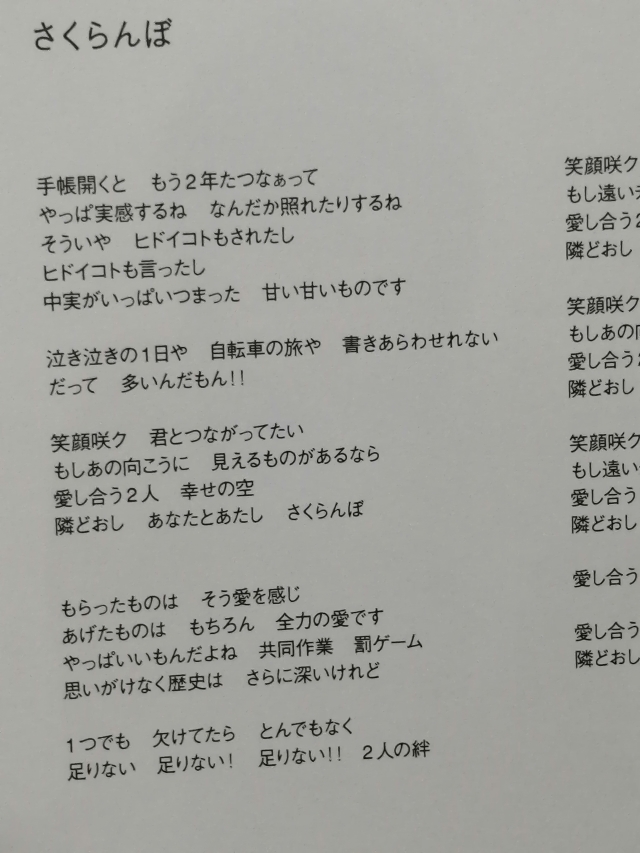 さくらんぼ
手帳開くと　もう2年たつなぁって
やっぱ実感するね　なんだか照れたりするね
そういや　ヒドイコトもされたし
ヒドイコトも言ったし
中実がいっぱいつまった　甘い甘いものです
泣き泣きの1日や　自転車の旅や　書きあらわせれない
だって　多いんだもん!!
笑顔咲ク　君とつながってたい
もしあの向こうに　見えるものがあるなら
愛し合う2人　幸せの空
隣どおし　あなたとあたし　さくらんぼ
もらったものは　そう愛を感じ
あげたものは　もちろん　全力の愛です
やっぱいいもんだよね　共同作業　罰ゲーム
思いがけなく歴史は　さらに深いけれど
1つでも　欠けてたら　とんでもなく
足りない　足りない!　足りない!!　2人の絆
笑顔咲ク
もし遠い
愛し合う2
隣どおし
笑顔咲ク
もしあの向
愛し合う2
隣どおし
笑顔咲ク
もし遠い
愛し合う
隣どおし
愛し合う
愛し合う
隣どおし